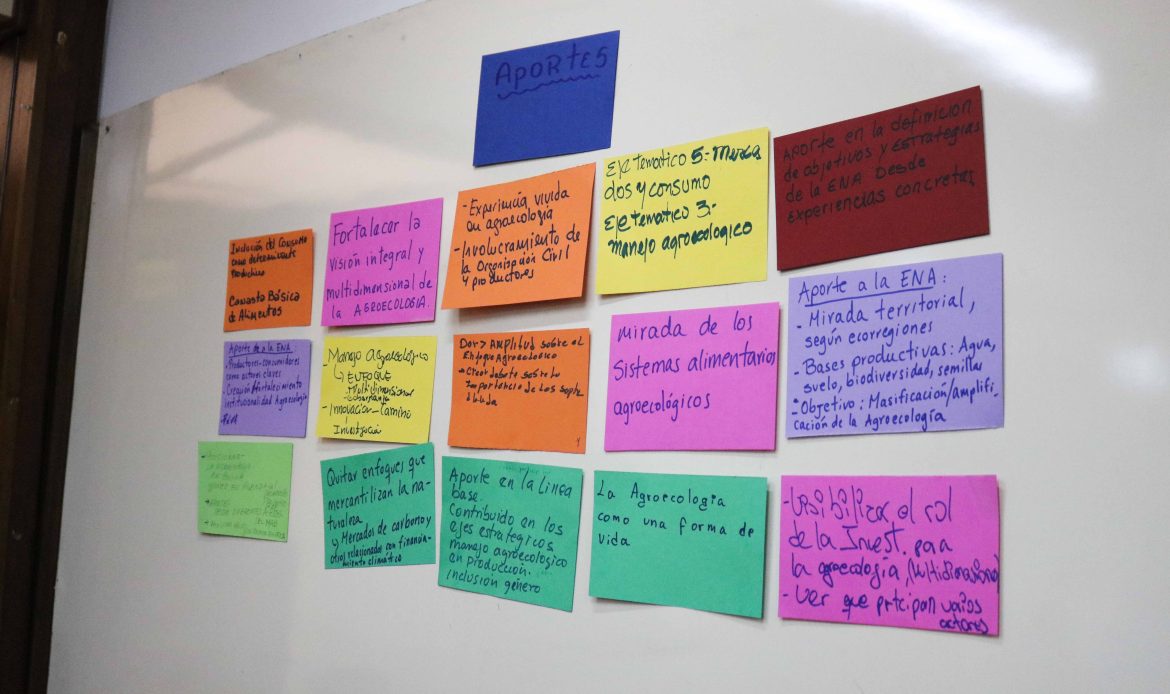 APORTES
Inclusión del Consumo
como determinante
Productivo
Canasta Básica
de Alimentos
Fortalecer la
visión integral y
multidimensional de
la AGROECOLOGIA.
- Experiencia vivida
en agroecología
- Involucramiento de
la Organización Civil
y productores
Eje tematico 5:- Merca
dos y consumo
Eje tematico 3:-
manejo agroecologico
Aporte en la definicion
de objetivos y ESTRATEGIAS
de la ENA Desde
Experiencias concretas
Aporte a la ENA:
- Productores-consumidores
como actores claves
- Creación/fortalecimiento
institucionalidad Agroecología
Manejo Agroecológico
↳ ENFOQUE
- Multidimensional
- Innovación - Camino
Investigación
Dar > AMPlitud sobre el
Enfoque Agroecologico
- Crear debate sobre la
Importancia de los
mirada de los
Sistemas alimentarios
agroecológicos
Aporte a la ENA:
- Mirada territorial,
según ecorregiones
- Bases productivas: Agua,
suelo, biodiversidad, semillas
- Objetivo: Masificación/amplifi-
cación de la Agroecología
Quitar enfoques que
mercantilizan la na-
turaleza
y Mercados de carbono y
otros relacionados con financia-
miento climático
Aporte en la Linea
base.
Contribuido en los
ejes estratégicos
manejo agroecológico
en producción.
inclusion género
La Agroecologia
como una forma de
vida
- Visibilizar el rol
de la Invest. para
la agroecología,
- Ver que prtcipan varios
actores